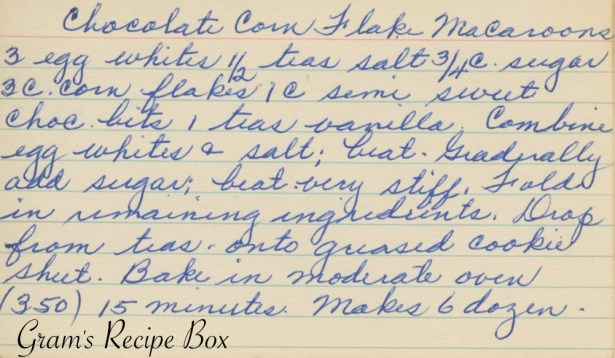 Chocolate Corn Flake Macaroons
3 egg whites 1/2 teas salt 3/4 c. sugar
3 c. corn flakes 1 c semi sweet
choc. bits 1 teas vanilla. Combine
egg whites & salt; beat. Gradually
add sugar; beat very stiff. Fold
in remaining ingredients. Drop
from teas. onto greased cookie
sheet. Bake in moderate oven
(350) 15 minutes. Makes 6 dozen.
Gram's Recipe Box